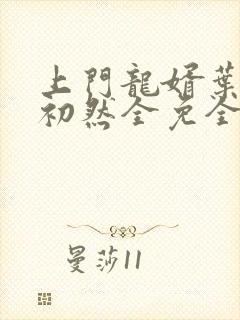 上門龍婿葉
初然全免全
曼莎11